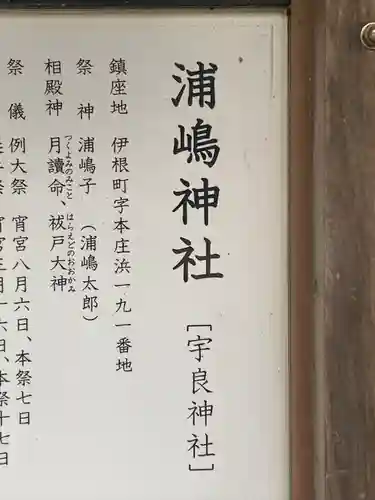 浦嶋神社 [宇良神社]
鎮座地 伊根町字本庄浜一九一番地
祭神 浦嶋子 (浦嶋太郎)
相殿神 月讀命、祓戸大神
つくよみのみこと はらえどのおおかみ
祭儀 例大祭 宵宮八月六日、本祭七日
宵宮三月十六日、本祭十七日